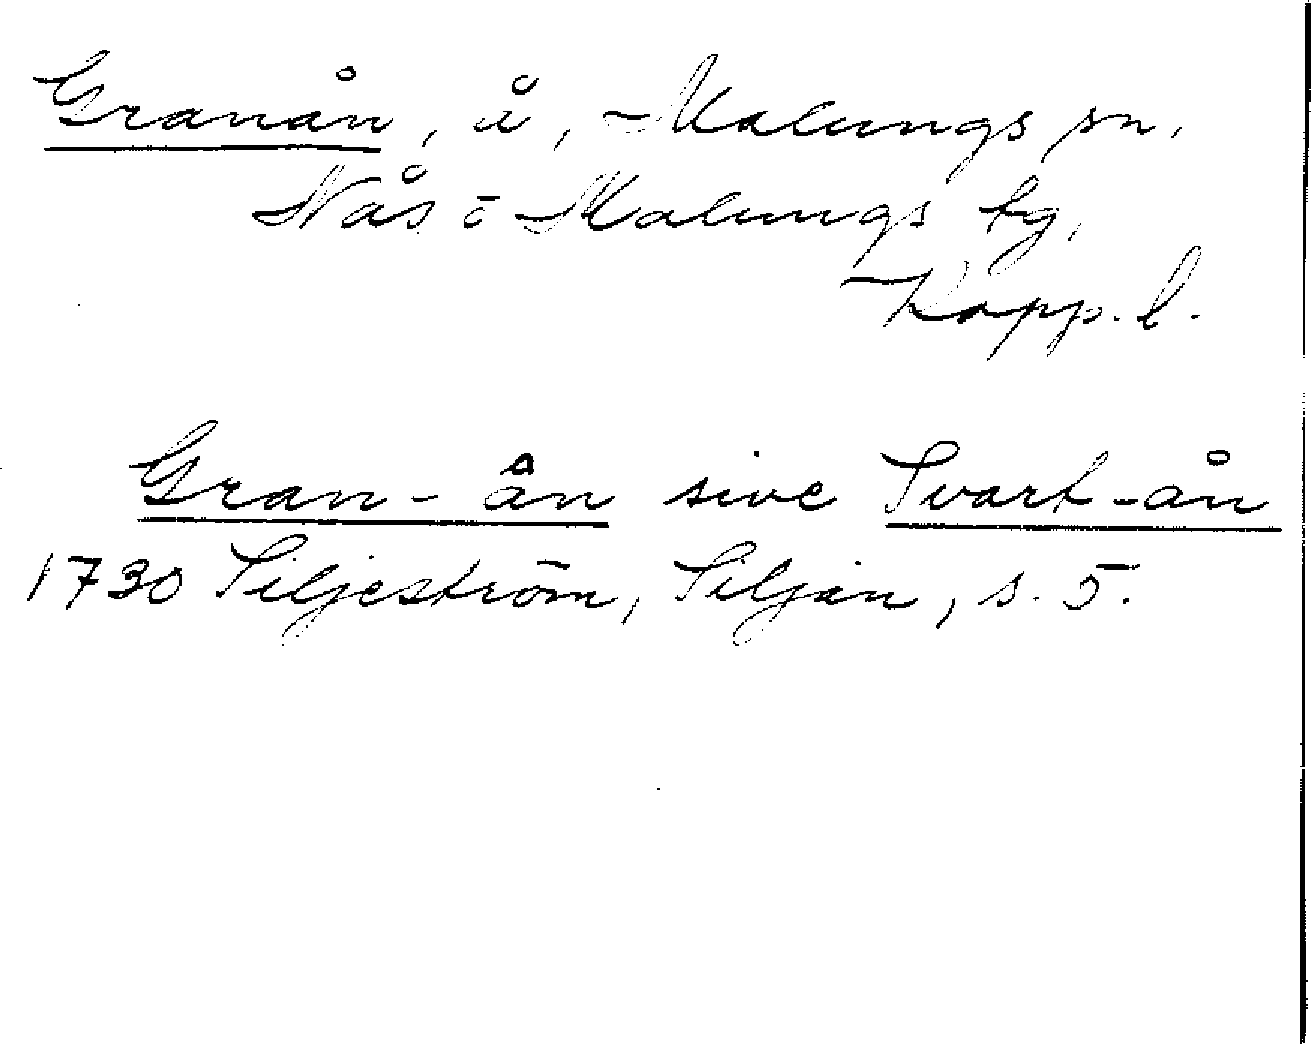 Granån, å, Malungs sn,
Nås o Malungs tg,
Kopp. l.
Gran-ån sive Svart-ån
1730 Siljeström, Siljan, s. 5.